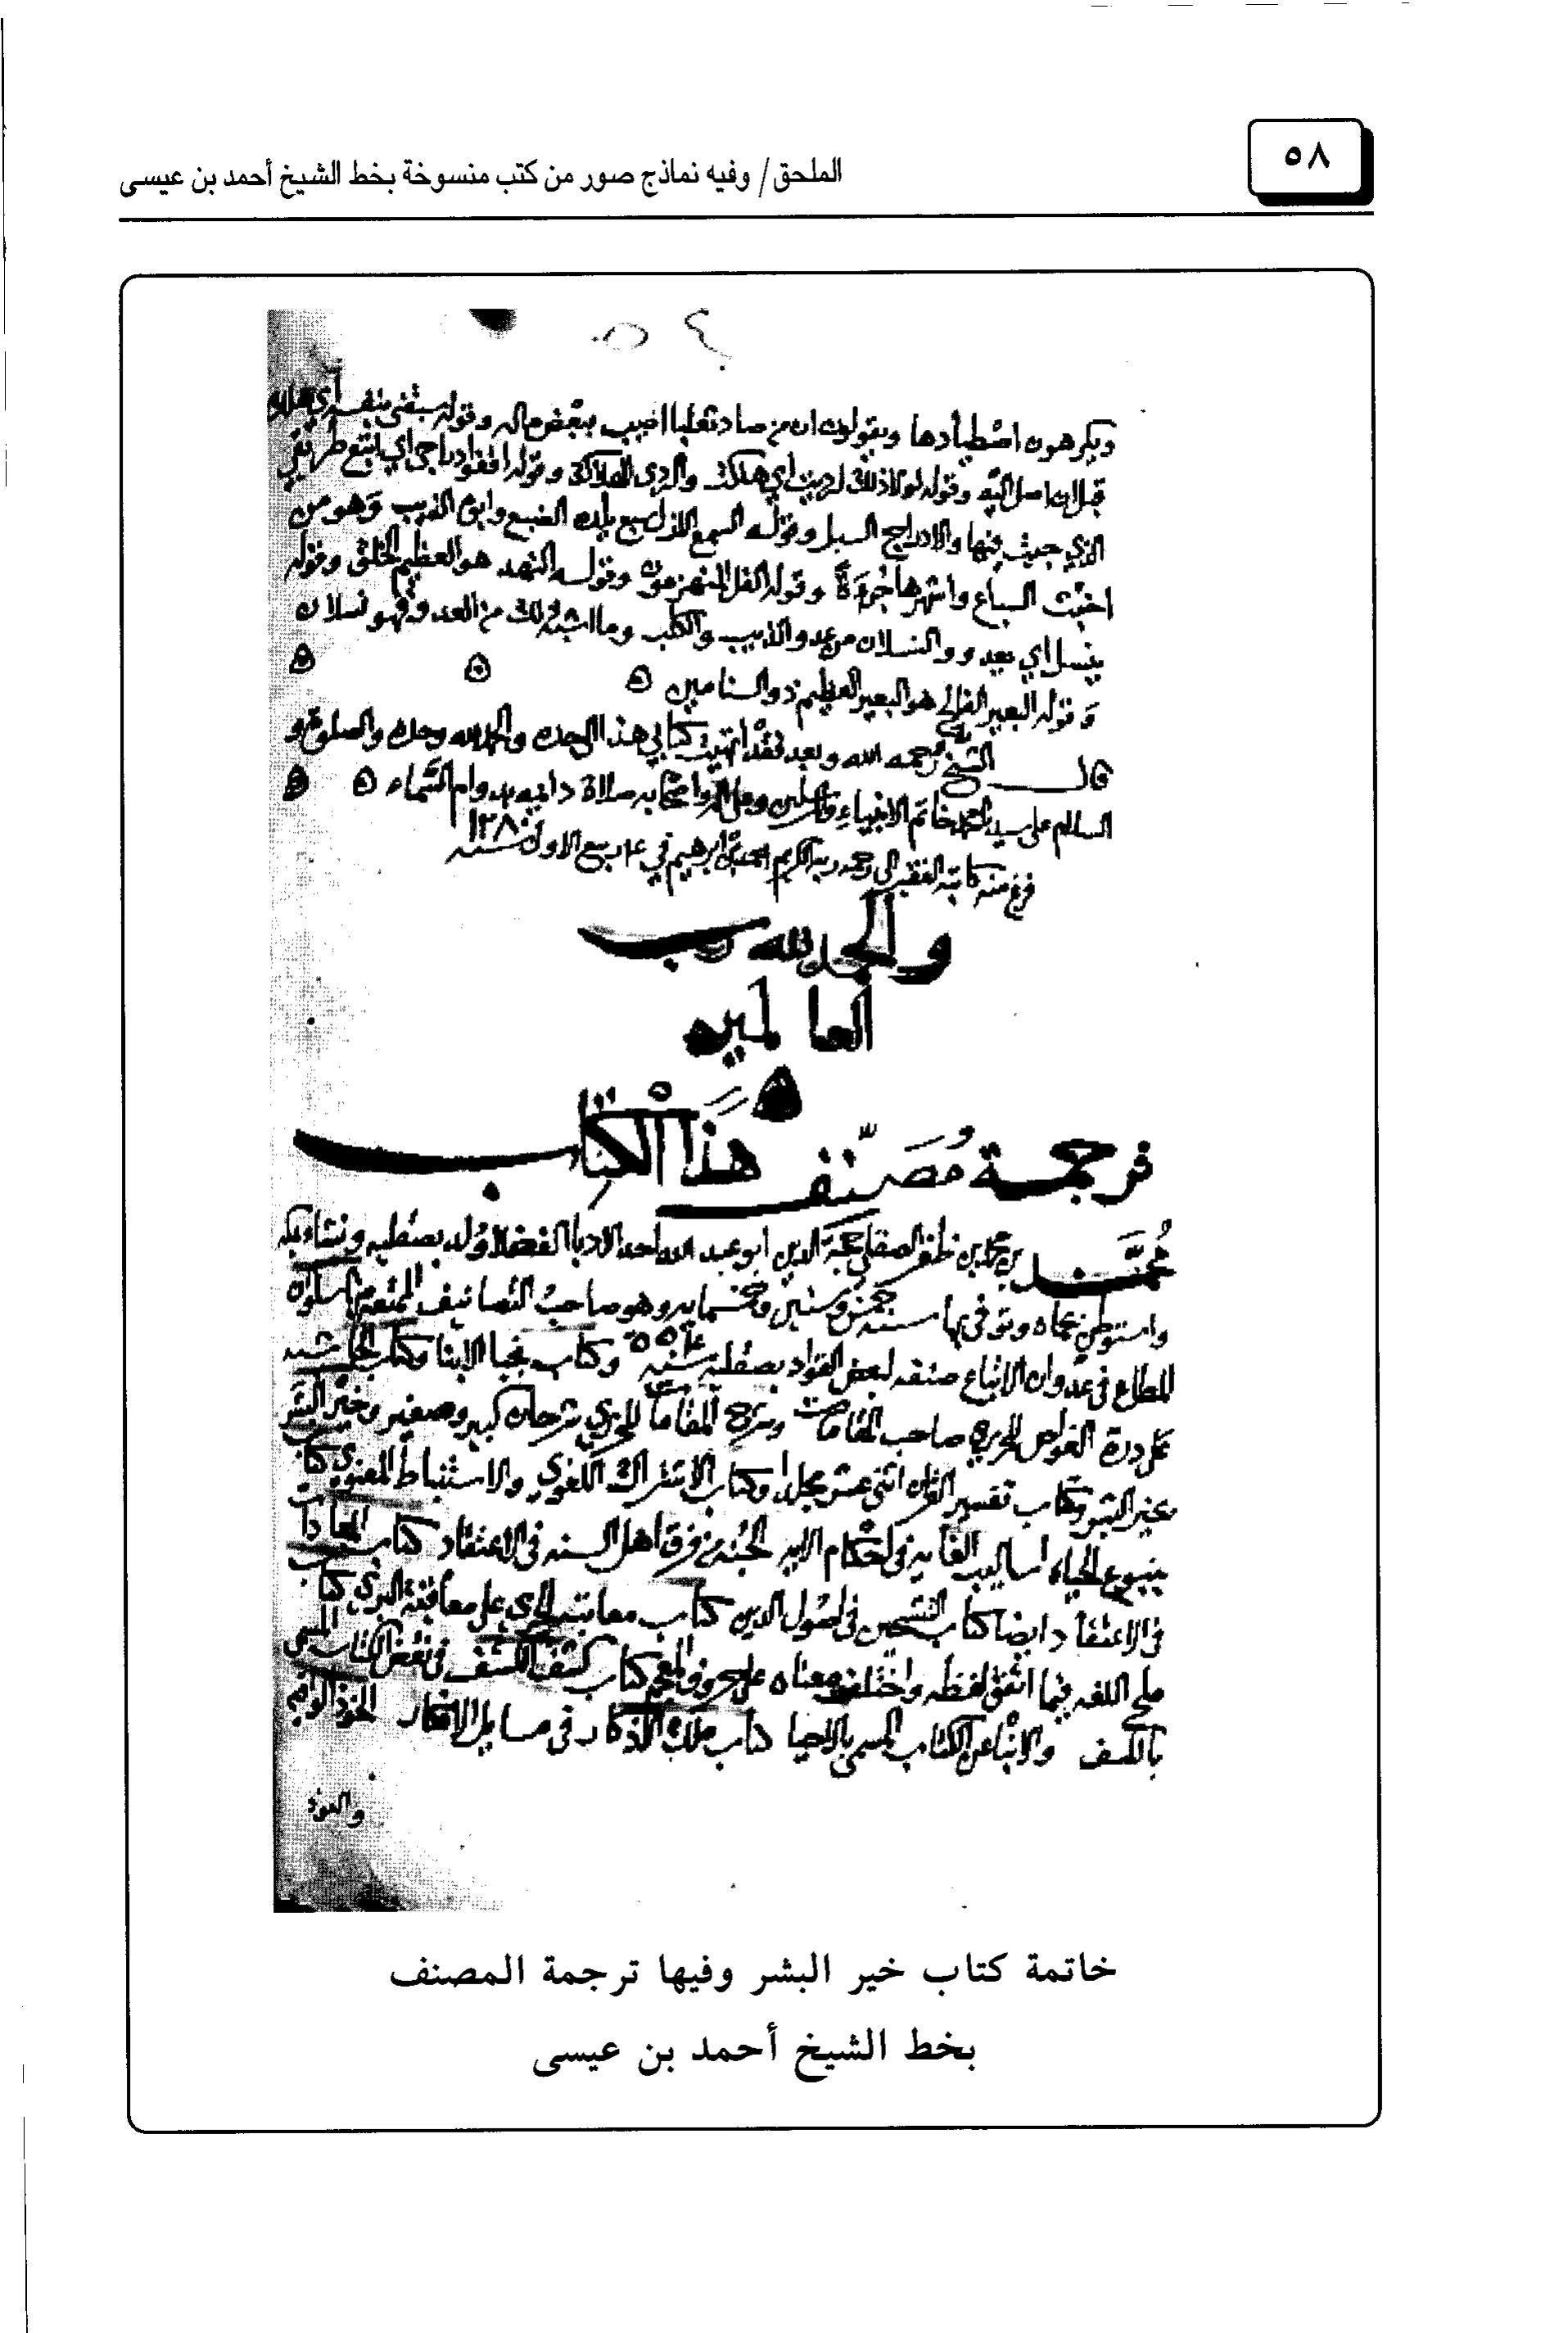 ٥٨
الملحق/ وفيه نماذج صور من كتب منسوخة بخط الشيخ أحمد بن عيسى
ويكرهون اصطيادها ويقولون ان من صاد ثعلبا اصيب ببعض ماله وقوله
قبل ان اصل اليه وقوله لولا ذلك لرديت اي هلكت والردى الهلاك وقوله
الذي جيت فيها والادلاج السير وقوله السمع الازل سبع يلده الضبع وابوه الذيب وهو من
اخبث السباع واشهرها جرءة وقوله الفل المنهزمون وقوله النهد هو العظيم الخلق وقوله
ينسل اي يعدو والنسلان من عدو الذيب والكلب وما اشبه ذلك من العدو فهو نسلان
وقوله البعير الفالج هو البعير العظيم ذو السنامين ه ه ه
قال الشيخ رحمه الله وبعد فقد انهيت كتابي هذا الى حده والحمد لله وحده والصلوة و
السلام على سيدنا محمد خاتم الانبياء والمرسلين وعلى اله واصحابه صلاة دايمه بدوام السماء ه ه
فرغ منه كاتبه الفقير الى رحمة ربه الكريم احمد بن ابرهيم في ١٠ ربيع الاول سنة ١٢٨٠
والحمد لله رب
العالمين
ه
ترجمة مُصَنّف هَذا الْكِتَاب
مُحمَّد بن محمد بن ظفر الصقلي حجة الدين ابو عبد الله احد الادبا الفضلا ولد بصقليه ونشا بمكه
واستوطن بحماه وتوفي بها سنة خمس وستين وخمسمايه وهو صاحب التصانيف الممتعه منها سلوان
المطاع في عدوان الاتباع صنفه لبعض القواد بصقليه سنه ٥٥٤ وكتاب نجبا الابنا وكتاب الحاشيه
على درة الغواص للحريري صاحب المقامات وشرح المقامات للحريري شرحان كبير وصغير وخير البشر
بخير البشر وكتاب تفسير القران اثنى عشر مجلدا وكتاب الاشتراك اللغوي والاستنباط المعنوي كتاب
ينبوع الحياه اساليب الغايه في احكام الايه الجنه من فرق اهل السنه في الاعتقاد كتاب المعادات
في الاعتقاد ايضا كتاب التشحين في اصول الدين كتاب معاتبه الجري على معاقبة البري كتاب
ملح اللغه فيما اتفق لفظه واختلف معناه على حروف المعجم كتاب كشف الكسف في نقض الكتاب المسمى
بالكسف والانباعن الكتاب المسمى بالاحيا كتاب مالك الاذكار في مسايل الافكار الخوذ الواقيه
والعوذ
خاتمة كتاب خير البشر وفيها ترجمة المصنف
بخط الشيخ أحمد بن عيسى